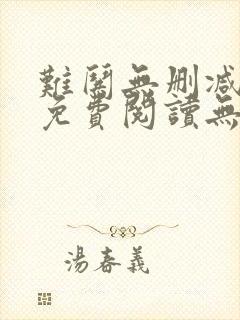 難鬧無刪減
免費閱讀無
湯春義